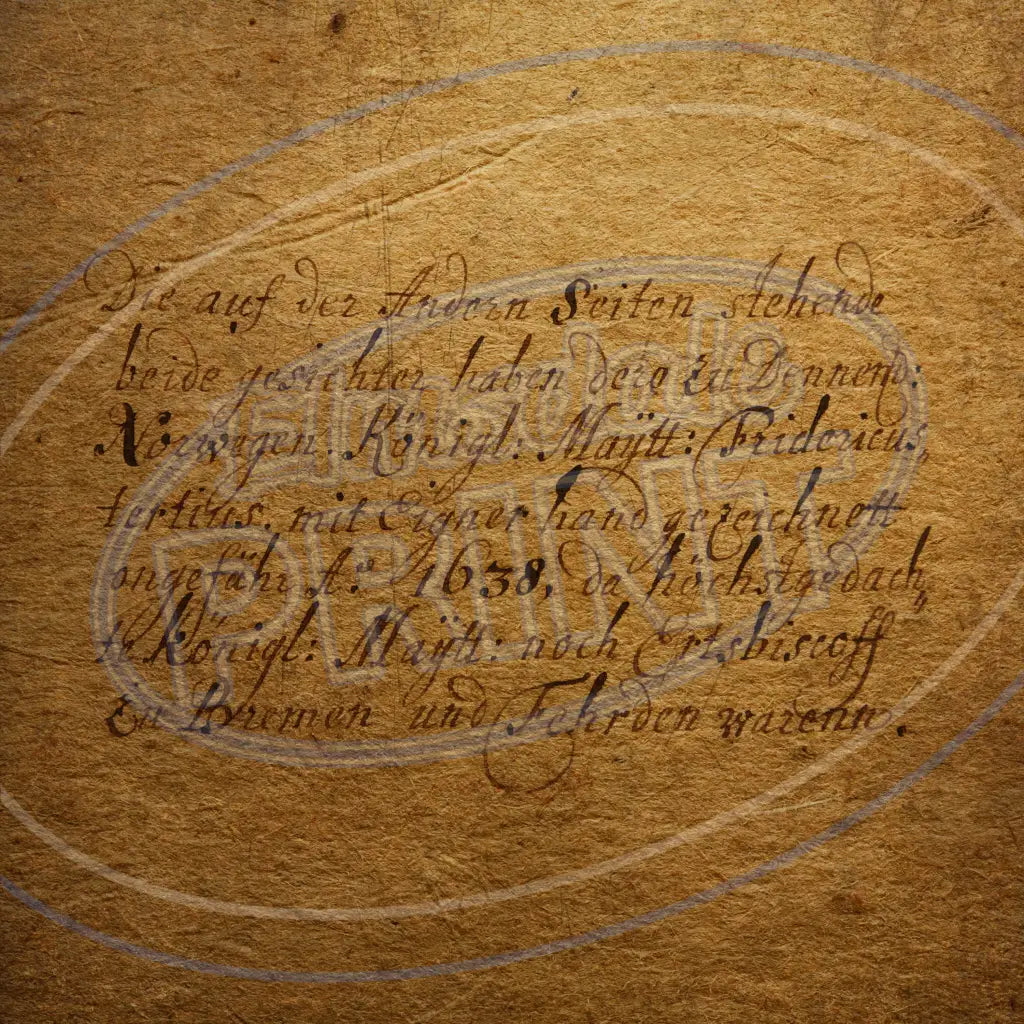 Die auf der Andern Seiten stehende
beide gesichter haben dero zu Dennem:
Norwegen. Königl: Maÿtt: Fridericus,
tertius, mit Eigner hand gezeichnett
ongefähr Aº 1638, da höchstgedach„
te Königl: Maÿtt: noch Ertsbiscoff
zu Bremen und Fehrden warenn.
PRINT